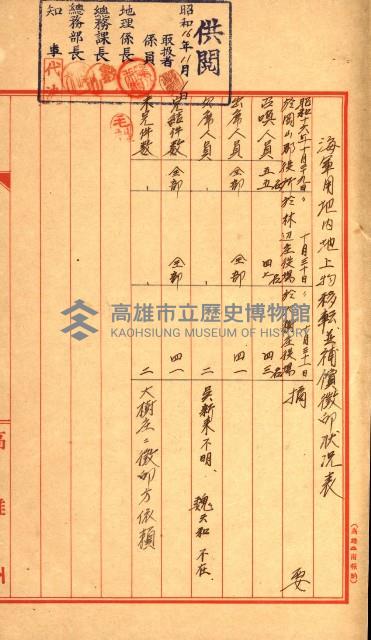 供閲
昭和16年11月1日
取扱者
係員
地理係長
總務課長
總務部長
知事
代決
海軍用地內地上物移転並補償徵印狀況表
昭和十六年十月二十九日
於岡山郡役所
十月三十日
於林辺庄役場
月三十一日
庄役場
摘要
召喚人員
五五名
四三名
出席人員
全部
全部
四一
欠席人員
、
、
二
吳新來不明、魏天和不在
完結件数
全部
全部
四一
未完件数
、
、
二
大樹庄ニ徵印方依賴
高雄市立歷史博物館
KAOHSIUNG MUSEUM OF HISTORY
高雄州